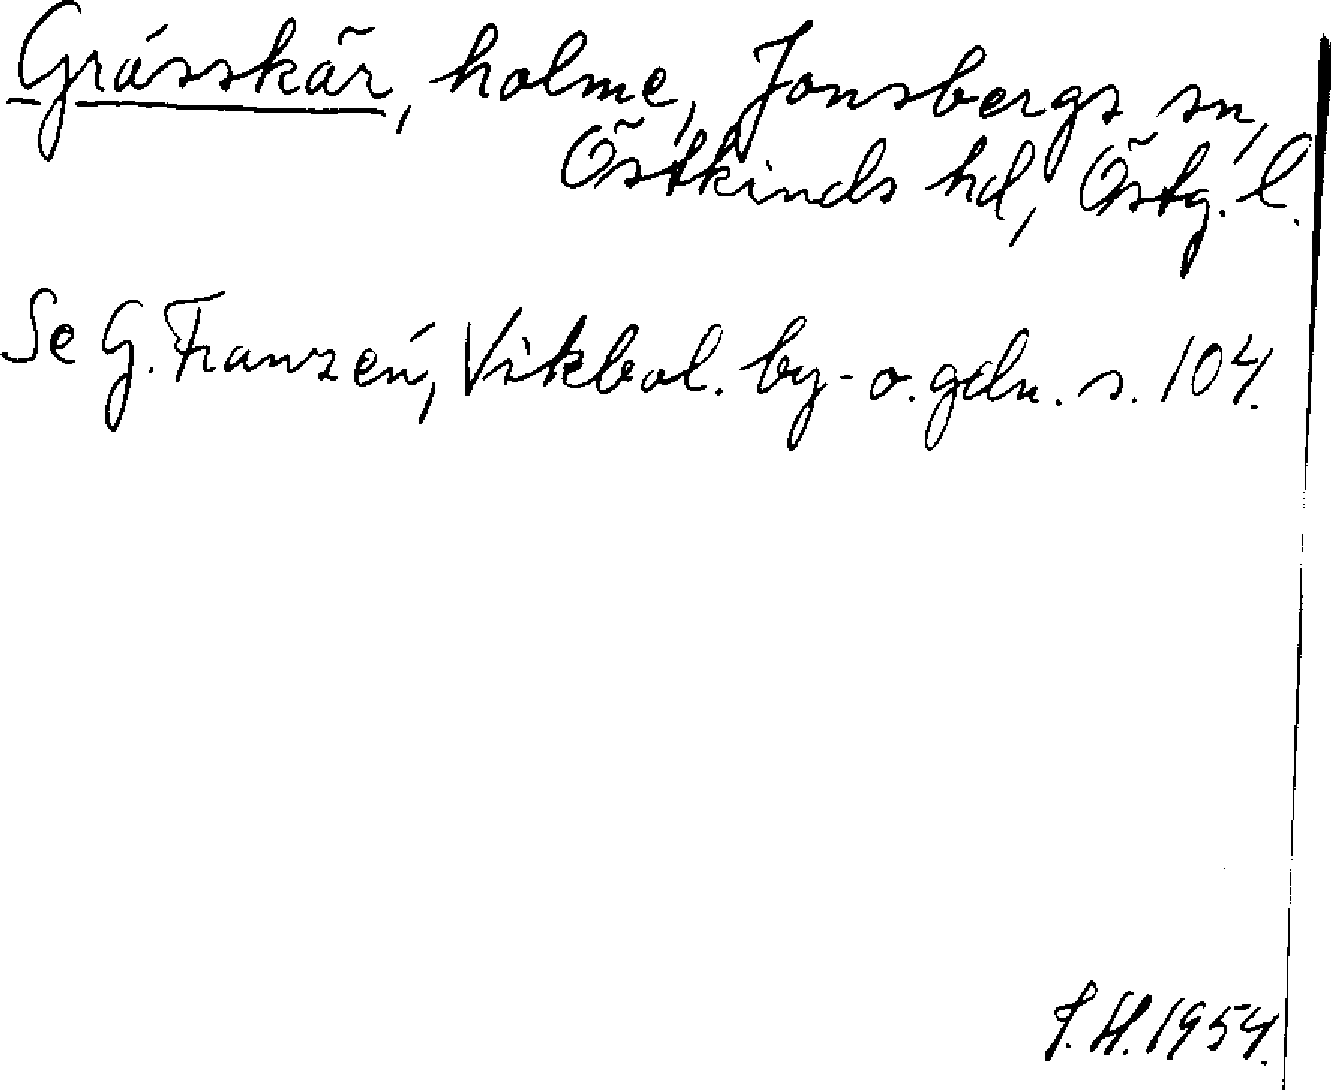 Grässkär, holme, Jonsbergs sn,
Östkinds hd, Östg. l.
Se G. Franzén, Vikbol. by- o. gdn. s. 104.
S. H. 1954.